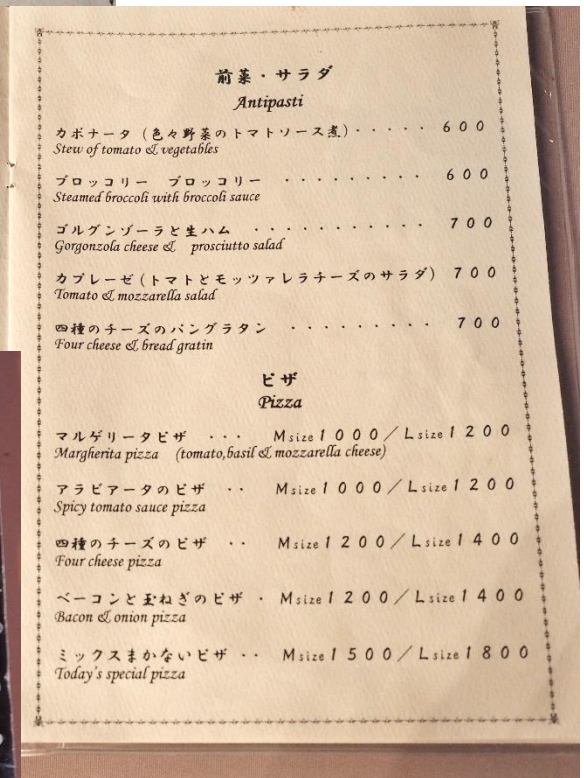 前菜・サラダ
Antipasti
カポナータ（色々野菜のトマトソース煮）・・・・・ 600
Stew of tomato & vegetables
ブロッコリー　ブロッコリー　・・・・・・・・・ 600
Steamed broccoli with broccoli sauce
ゴルゴンゾーラと生ハム　・・・・・・・・・・・ 700
Gorgonzola cheese &　prosciutto salad
カプレーゼ（トマトとモッツァレラチーズのサラダ） 700
Tomato & mozzarella salad
四種のチーズのパングラタン　・・・・・・・・・ 700
Four cheese & bread gratin
ピザ
Pizza
マルゲリータピザ　・・・　Msize1000／Lsize1200
Margherita pizza　(tomato,basil & mozzarella cheese)
アラビアータのピザ　・・　Msize1000／Lsize1200
Spicy tomato sauce pizza
四種のチーズのピザ　・・　Msize1200／Lsize1400
Four cheese pizza
ベーコンと玉ねぎのピザ　・　Msize1200／Lsize1400
Bacon & onion pizza
ミックスまかないピザ　・・　Msize1500／Lsize1800
Today's special pizza